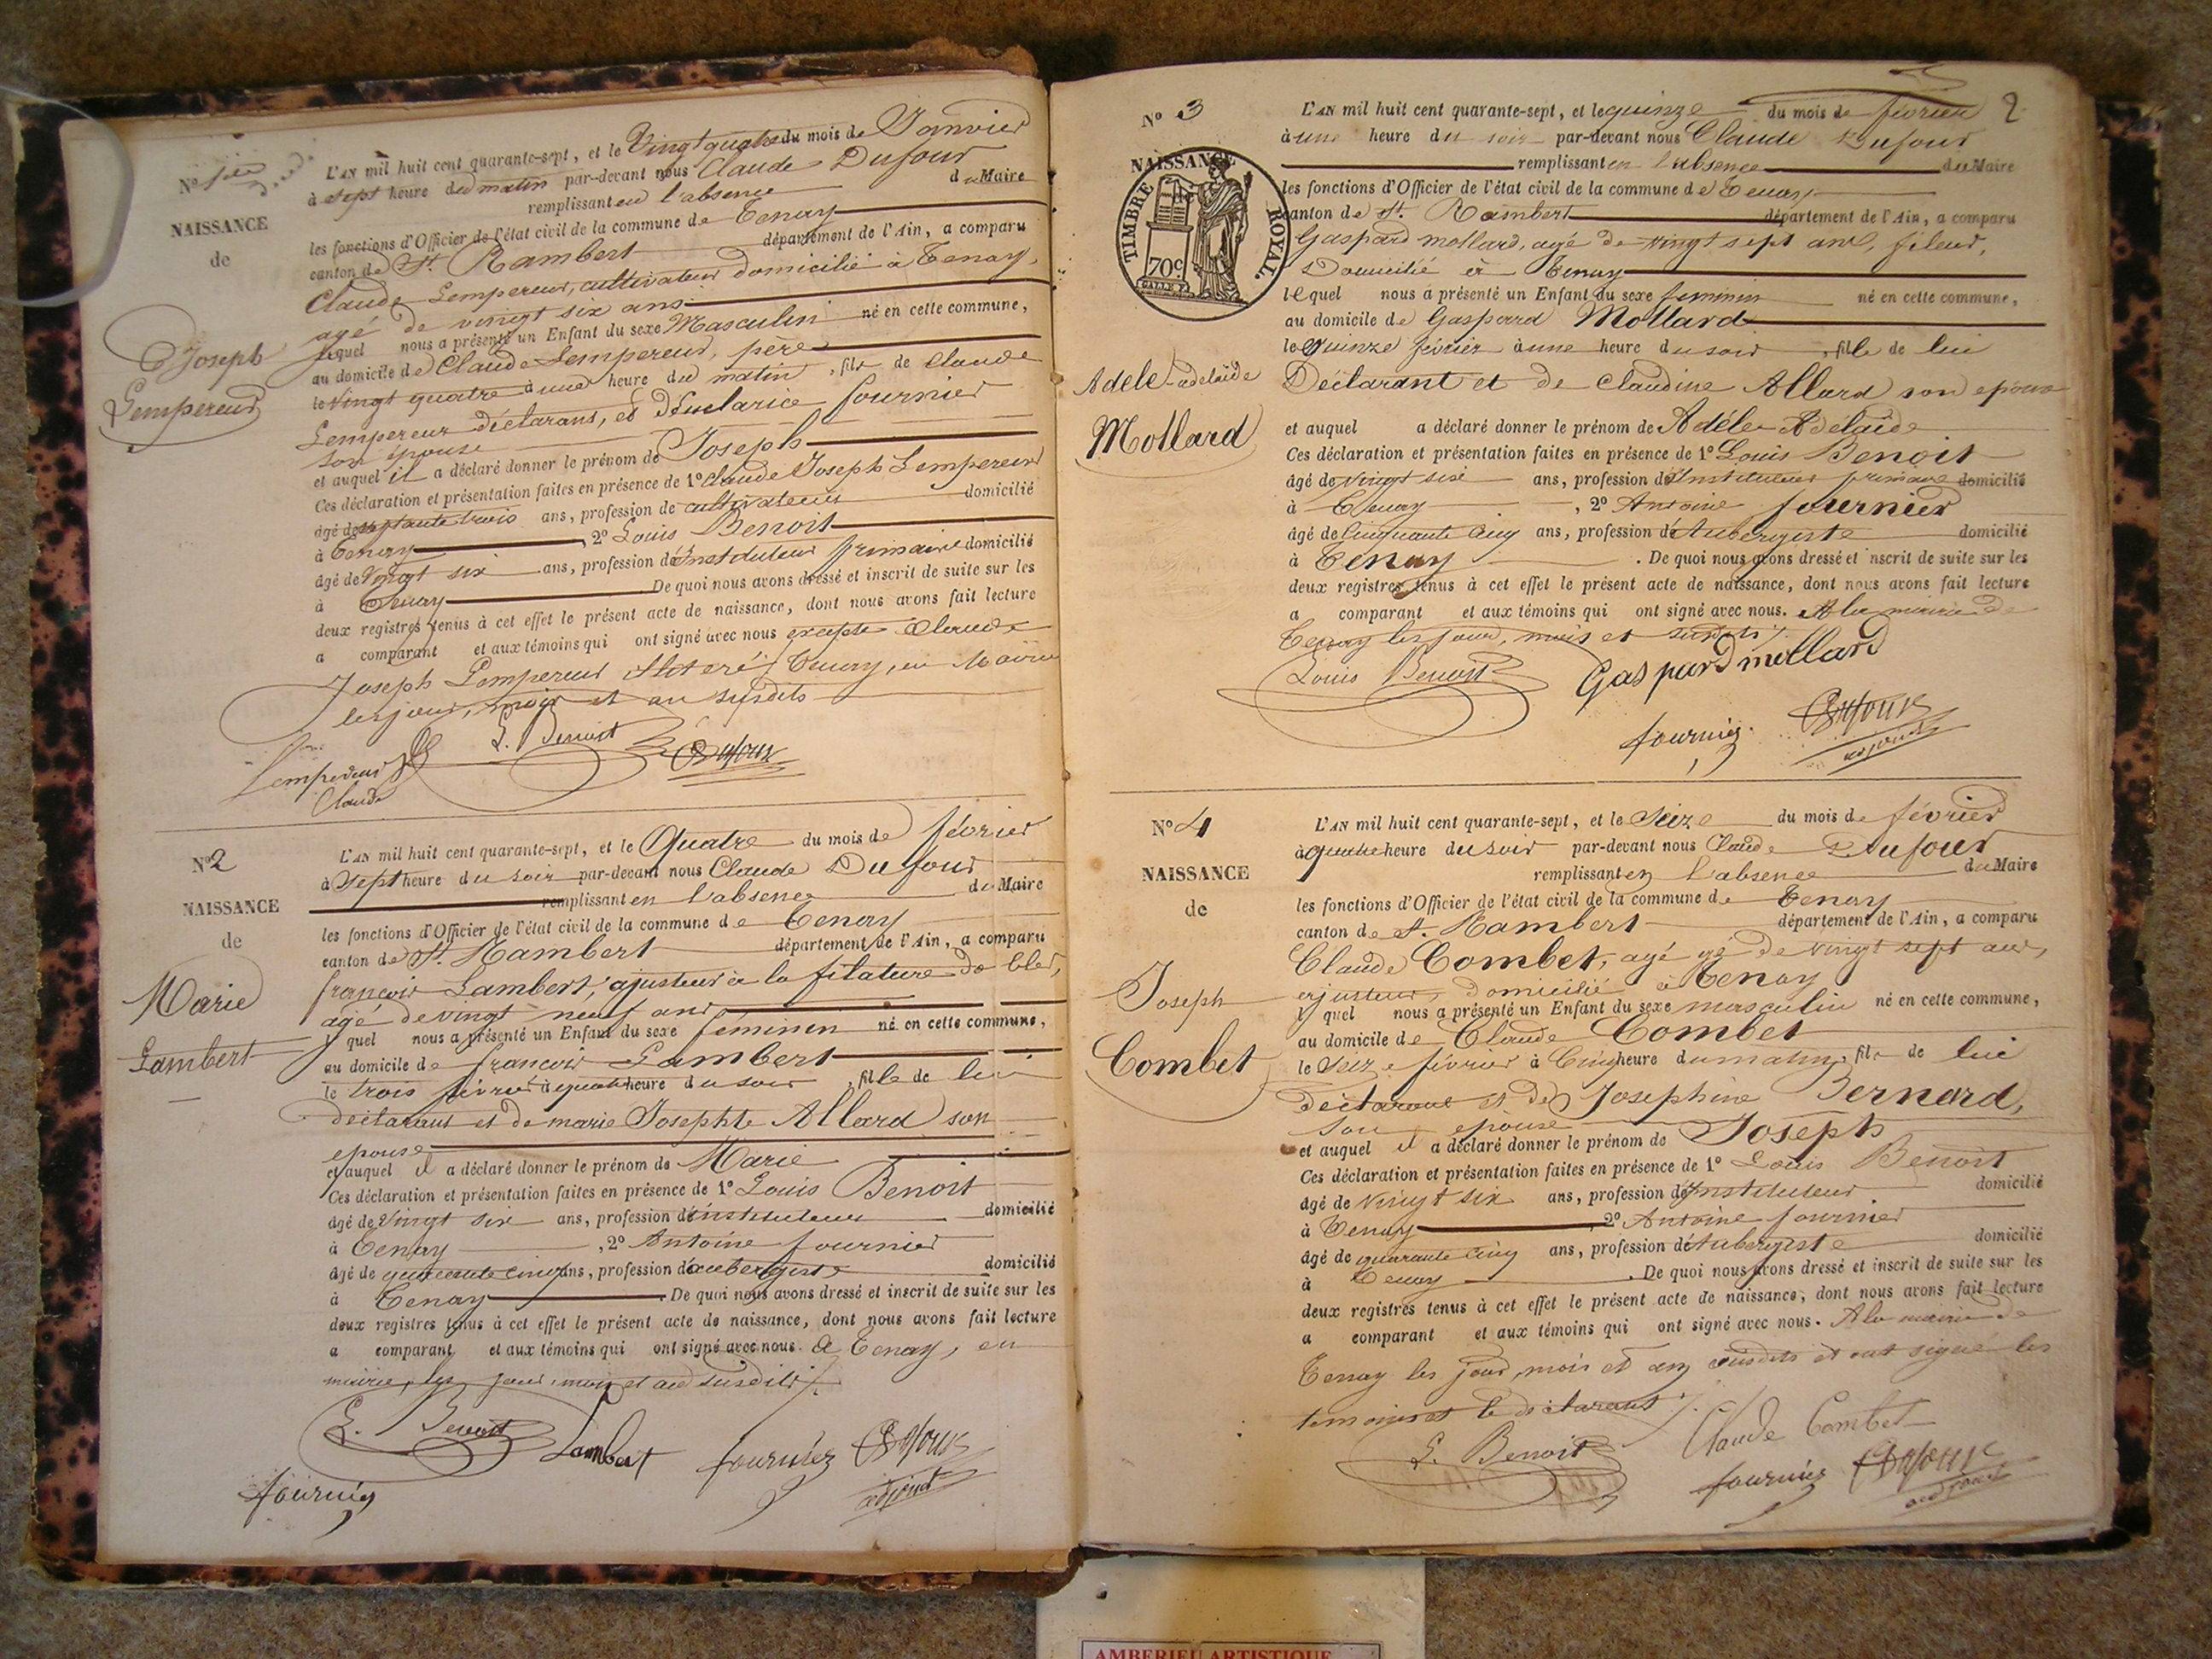 Nº 1er
NAISSANCE
de
Joseph
Lempereur
L'AN mil huit cent quarante-sept, et le Vingt quatre du mois de Janvier
à sept heure du matin par-devant nous Claude Dufour
remplissant en l'absence du Maire
les fonctions d'Officier de l'état civil de la commune de Tenay
canton de St. Rambert département de l'Ain, a comparu
Claude Lempereur, cultivateur domicilié à Tenay,
agé de vingt six ans
lequel nous a présenté un Enfant du sexe Masculin né en cette commune,
au domicile de Claude Lempereur, père
le Vingt quatre à une heure du matin, fils de Claude
Lempereur déclarant, et de Clarice fournier
son épouse
et auquel il a déclaré donner le prénom de Joseph
Ces déclaration et présentation faites en présence de 1º Claude Joseph Lempereur
âgé de septante trois ans, profession de cultivateur domicilié
à Tenay, 2º Louis Benoit
âgé de Vingt six ans, profession d'Instituteur primaire domicilié
à Tenay De quoi nous avons dressé et inscrit de suite sur les
deux registres tenus à cet effet le présent acte de naissance, dont nous avons fait lecture
a comparant et aux témoins qui ont signé avec nous excepté Claude
Joseph Lempereur illitéré, Tenay, en Mairie
les jour, mois et an susdits
Lempereur L. Benoit Dufour
Claude
Nº 2
NAISSANCE
de
Marie
Lambert
L'AN mil huit cent quarante-sept, et le Quatre du mois de février
à Sept heure du soir par-devant nous Claude Dufour
remplissant en l'absence du Maire
les fonctions d'Officier de l'état civil de la commune de Tenay
canton de St. Rambert département de l'Ain, a comparu
françois Lambert, ajusteur à la filature
agé de vingt neuf ans
quel nous a présenté un Enfant du sexe féminin né en cette commune,
au domicile de françois Lambert
le trois février à quatre heure du soir, fille de lui
déclarant et de marie Josephte Allard son
epouse
et auquel il a déclaré donner le prénom de Marie
Ces déclaration et présentation faites en présence de 1º Louis Benoit
âgé de Vingt six ans, profession d'instituteur domicilié
à Tenay, 2º Antoine fournier
âgé de quarante cinq ans, profession d'aubergiste domicilié
à Tenay. De quoi nous avons dressé et inscrit de suite sur les
deux registres tenus à cet effet le présent acte de naissance, dont nous avons fait lecture
a comparant et aux témoins qui ont signé avec nous. à Tenay, en
mairie, les jour, mois et an susdits
L. Benoit Lambert fournier Dufour
adjoint
fournier
2
Nº 3
NAISSANCE
TIMBRE ROYAL.
70c
Adele-adelaïde
Mollard
L'AN mil huit cent quarante-sept, et le quinze du mois de février
à une heure du soir par-devant nous Claude Dufour
remplissant en l'absence du Maire
les fonctions d'Officier de l'état civil de la commune de Tenay
canton de St. Rambert département de l'Ain, a comparu
Gaspard mollard, agé de vingt sept ans, fileur,
Domicilié à Tenay
lequel nous a présenté un Enfant du sexe feminin né en cette commune,
au domicile de Gaspard Mollard
le quinze février à une heure du soir, fille de lui
Déclarant et de claudine Allard son epouse
et auquel a déclaré donner le prénom de Adéle-Adélaïde
Ces déclaration et présentation faites en présence de 1º Louis Benoit
âgé de vingt six ans, profession d'Instituteur primaire domicilié
à Tenay, 2º Antoine fournier
âgé de Cinquante Cinq ans, profession d'Aubergiste domicilié
à Tenay. De quoi nous avons dressé et inscrit de suite sur les
deux registres tenus à cet effet le présent acte de naissance, dont nous avons fait lecture
a comparant et aux témoins qui ont signé avec nous. A la mairie de
Tenay les jour, mois et
Louis Benoit Gaspard mollard
fournier Dufour
adjoint
Nº 4
NAISSANCE
de
Joseph
Combet
L'AN mil huit cent quarante-sept, et le Seize du mois de février
à quatre heure du soir par-devant nous Claude Dufour
remplissant en l'absence du Maire
les fonctions d'Officier de l'état civil de la commune de Tenay
canton de St. Rambert département de l'Ain, a comparu
Claude Combet, agé de vingt sept ans,
ajusteur, domicilié à Tenay
quel nous a présenté un Enfant du sexe masculin né en cette commune,
au domicile de Claude Combet
le Seize février à Cinq heure du matin, fils de lui
déclarant et de Josephine Bernard,
son epouse
et auquel il a déclaré donner le prénom de Joseph
Ces déclaration et présentation faites en présence de 1º Louis Benoit
âgé de Vingt six ans, profession d'Instituteur domicilié
à Tenay 2º Antoine fournier
âgé de quarante cinq ans, profession d'Aubergiste domicilié
à Tenay. De quoi nous avons dressé et inscrit de suite sur les
deux registres tenus à cet effet le présent acte de naissance, dont nous avons fait lecture
a comparant et aux témoins qui ont signé avec nous. A la mairie de
Tenay les jour, mois et an susdits et ont signé les
temoins et le déclarant
L. Benoit Claude Combet
fournier Dufour
adjoint
AMBERIEU ARTISTIQUE